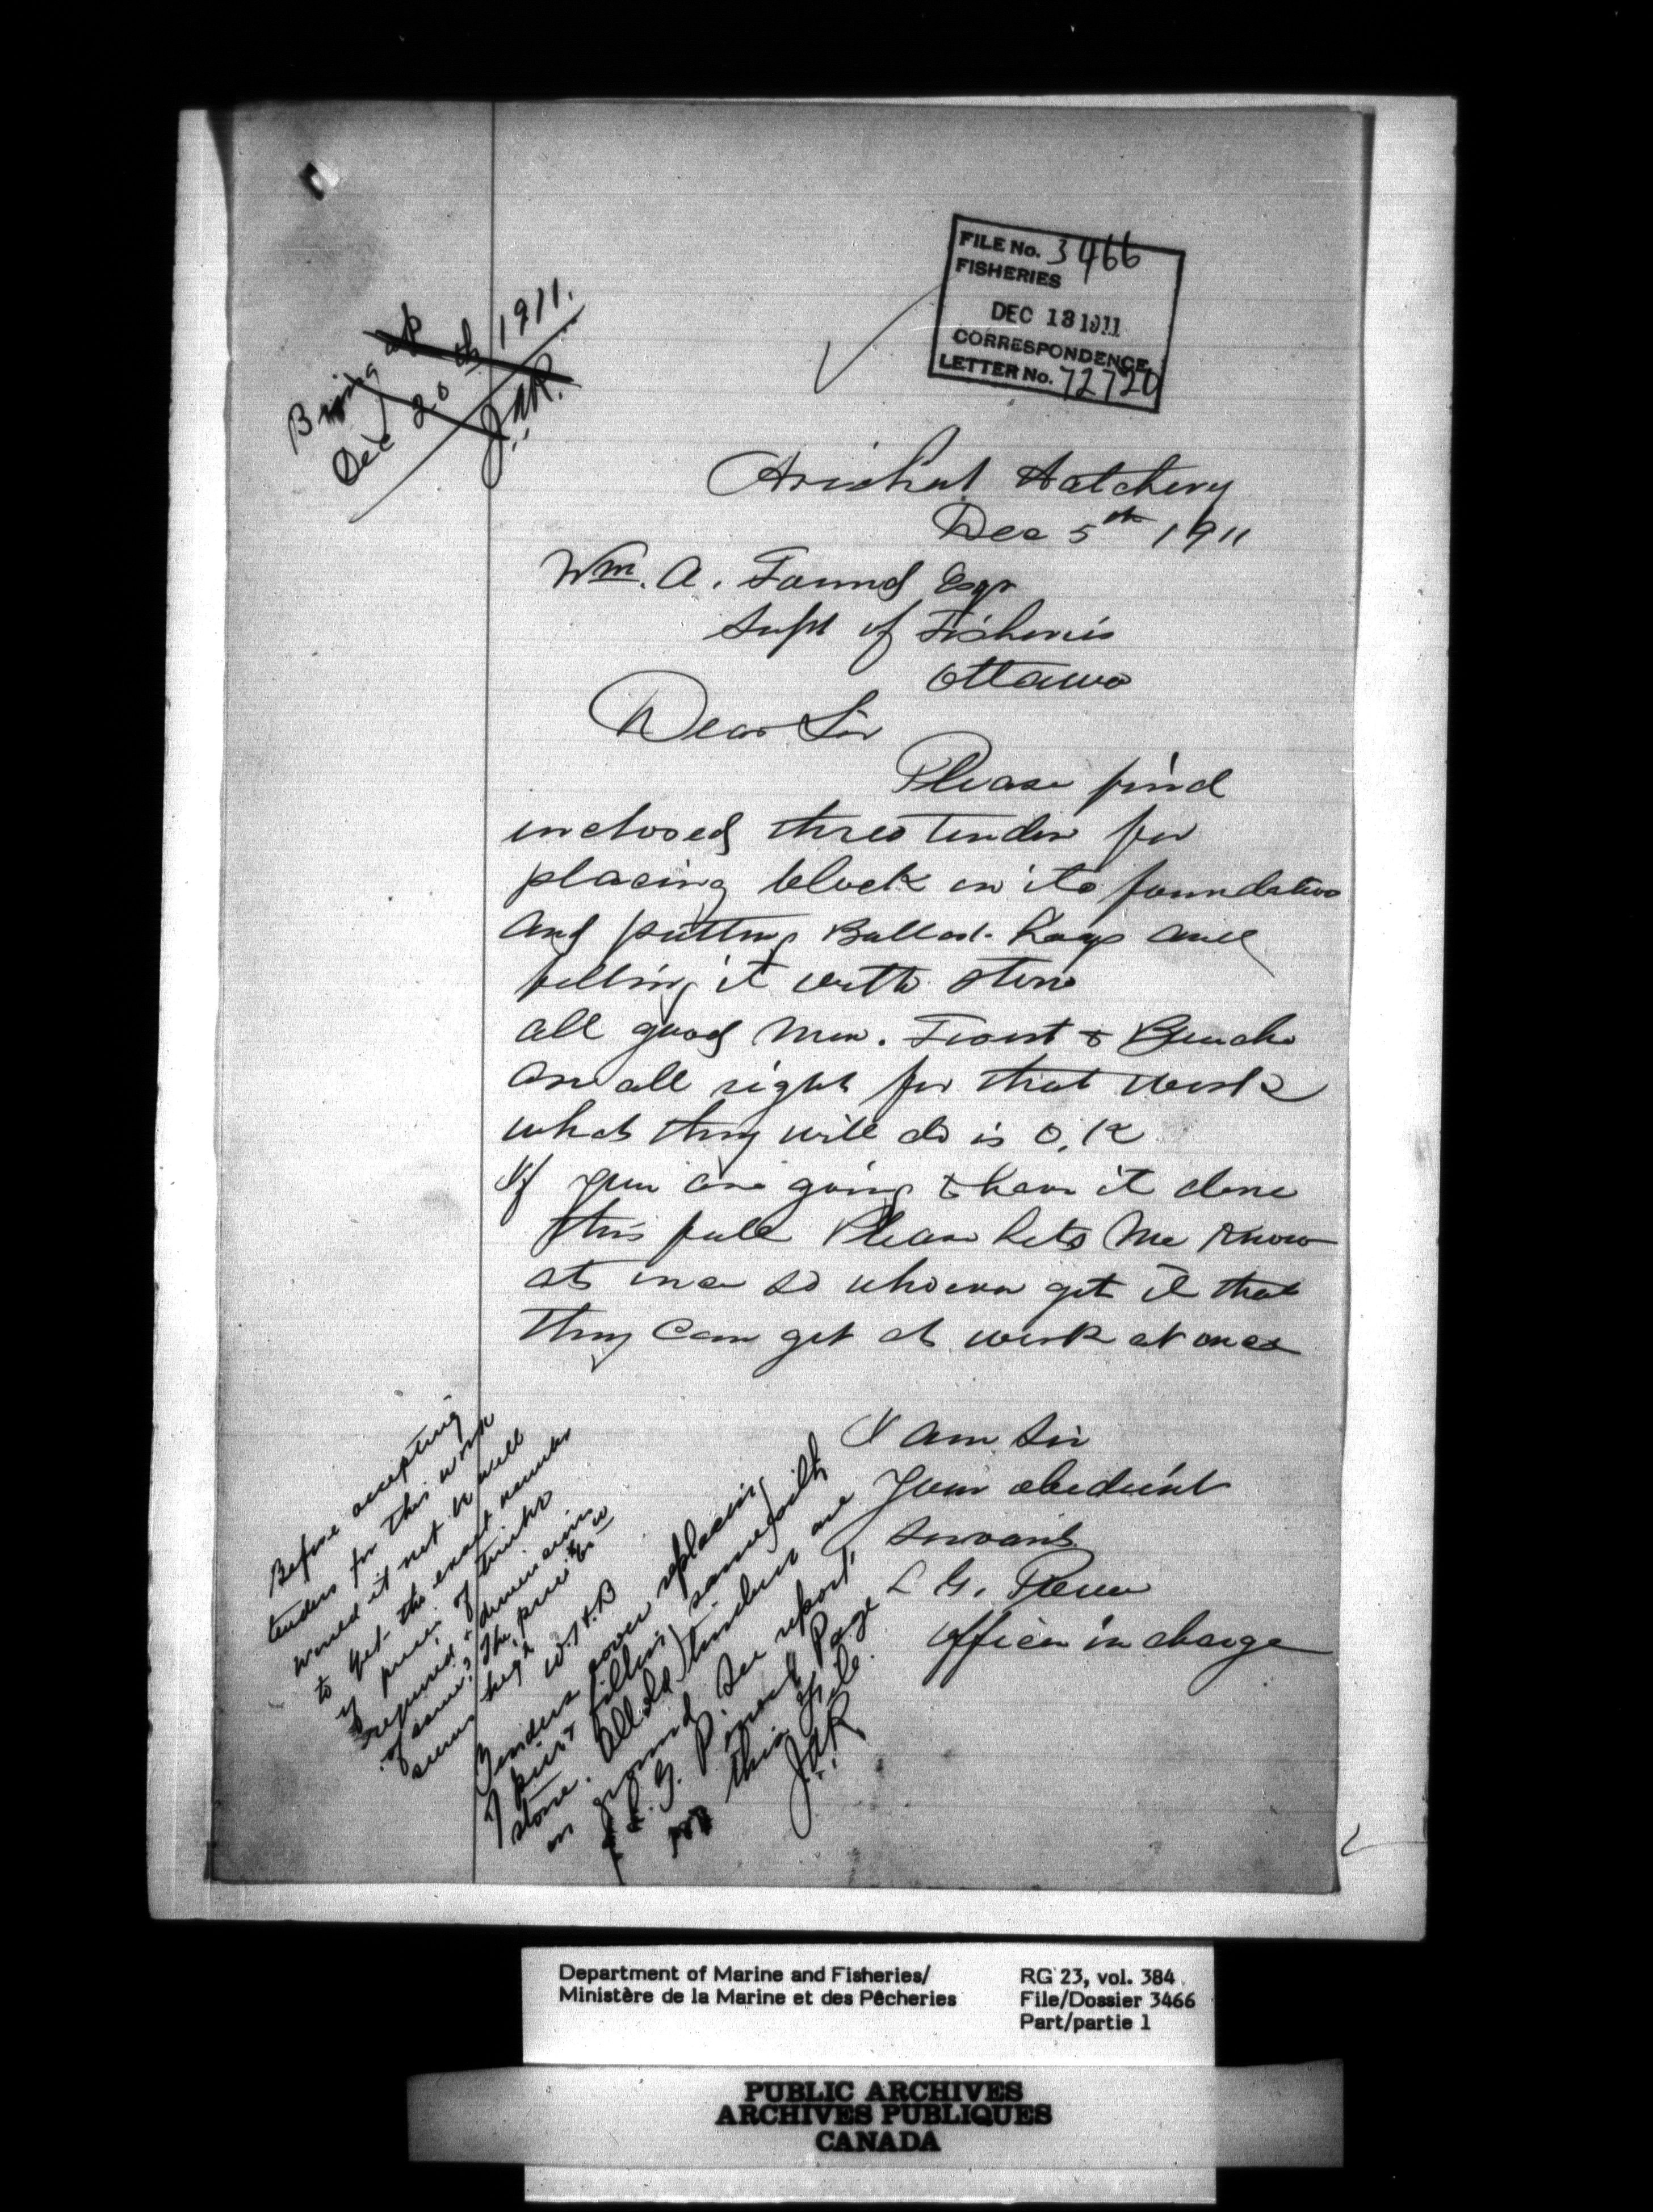 FILE No. 3466
FISHERIES
DEC 13 1911
CORRESPONDENCE
LETTER No. 72720
Bring up
Dec 20th 1911.
J.A.R.
Arichat Hatchery
Dec 5th 1911
Wm. A. Found Esqr
Supt of Fisheries
Ottawa
Dear Sir
Please find
inclosed three tender for
placing block on its foundation
and putting Ballast
filling it with stone
all good men. &
are all right for that work
what they will do is O.K
If you are going to have it done
this fall Please let me know
at once so whoever get it that
they can get at work at once
I am Sir
Your obedient
Servant
officer in charge
Before accepting
tenders for this work
would it not be well
to get the exact number
of pieces of timber
required & dimensions
of same? The price
seems high
W.H.B
Tenders cover replacing
pier & filling same with
stone. All old timber are
on ground. See report
of L.G. P. Page
on this file.
J.A.R.
Department of Marine and Fisheries/
Ministère de la Marine et des Pêcheries
RG 23, vol. 384
File/Dossier 3466
Part/partie 1
PUBLIC ARCHIVES
ARCHIVES PUBLIQUES
CANADA